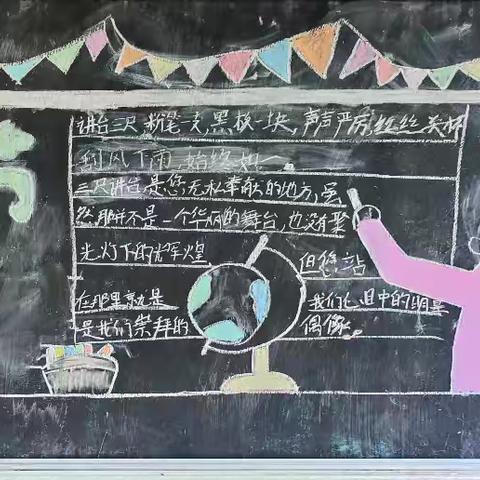 讲台三尺,粉笔一支,黑板一块,声声严厉,丝丝关怀
刮风下雨,始终如一。
三尺讲台是您无私奉献的地方,虽
然那并不是一个华丽的舞台,也没有聚
光灯下的辉煌 但您站
在那里就是 我们心目中的明星
是我们崇拜的 偶像。